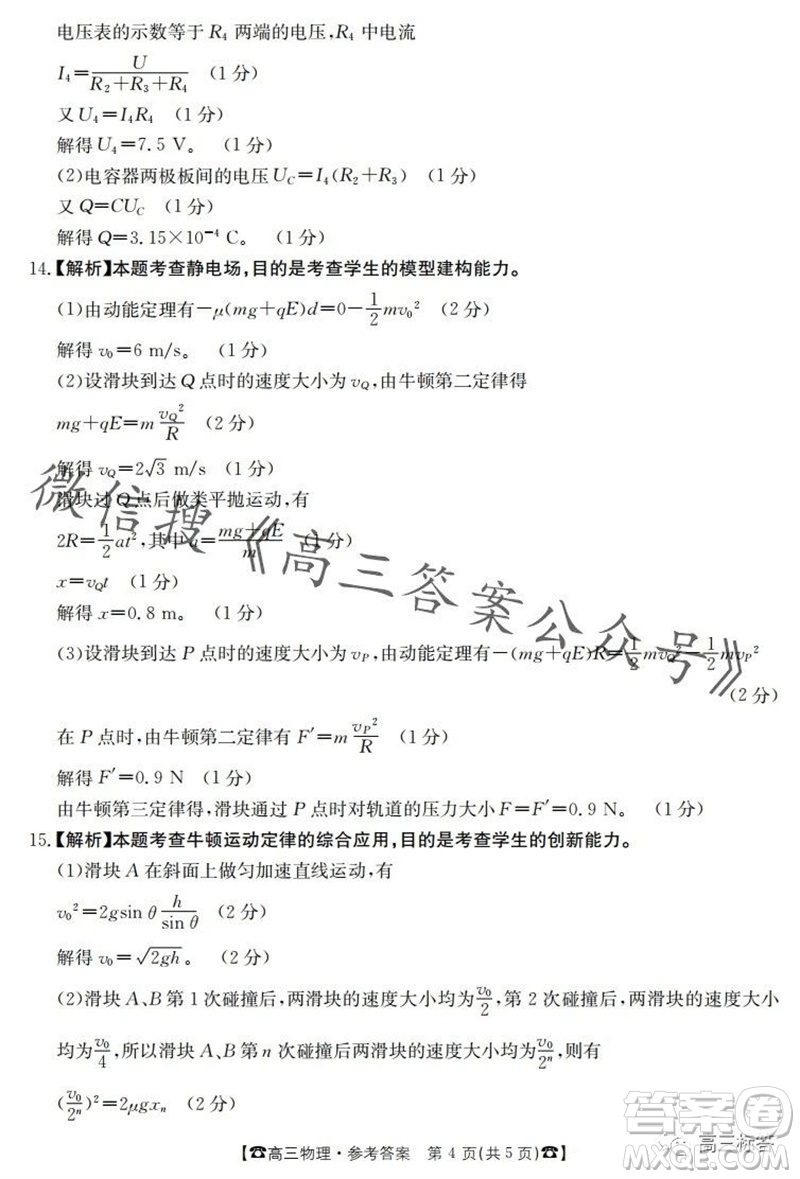 电压表的示数等于 R₄ 两端的电压,R₄ 中电流
I₄=U/(R₂+R₃+R₄) (1 分)
又 U₄=I₄R₄ (1 分)
解得 U₄=7.5 V。 (1 分)
(2)电容器两极板间的电压 U_C=I₄(R₂+R₃) (1 分)
又 Q=CU_C (1 分)
解得 Q=3.15×10⁻⁴ C。 (1 分)
14.【解析】本题考查静电场,目的是考查学生的模型建构能力。
(1)由动能定理有-μ(mg+qE)d=0-1/2 mv₀² (2 分)
解得 v₀=6 m/s。 (1 分)
(2)设滑块到达 Q 点时的速度大小为 v_Q,由牛顿第二定律得
mg+qE=m v_Q²/R (2 分)
解得 v_Q=2√3 m/s (1 分)
滑块过 Q 点后做类平抛运动,有
2R=1/2 at²,其中 a=(mg+qE)/m (1 分)
x=v_Qt (1 分)
解得 x=0.8 m。 (1 分)
(3)设滑块到达 P 点时的速度大小为 v_P,由动能定理有-(mg+qE)R=1/2 mv_Q²-1/2 mv_P²
(2 分)
在 P 点时,由牛顿第二定律有 F′=m v_P²/R (1 分)
解得 F′=0.9 N (1 分)
由牛顿第三定律得,滑块在 P 点时对轨道的压力大小 F=F′=0.9 N。 (1 分)
15.【解析】本题考查牛顿运动定律的综合应用,目的是考查学生的创新能力。
(1)滑块 A 在斜面上做匀加速直线运动,有
v₀²=2gsin θ h/sin θ (2 分)
解得 v₀=√(2gh)。 (1 分)
(2)滑块 A、B 第 1 次碰撞后,两滑块的速度大小均为v₀/2,第 2 次碰撞后,两滑块的速度大小
均为v₀/4,所以滑块 A、B 第 n 次碰撞后两滑块的速度大小均为v₀/2ⁿ,则有
(v₀/2ⁿ)²=2μgxₙ (2 分)
【☎高三物理·参考答案 第 4 页(共 5 页)☎】
微信搜《高三答案公众号》
答案圈
高三标答